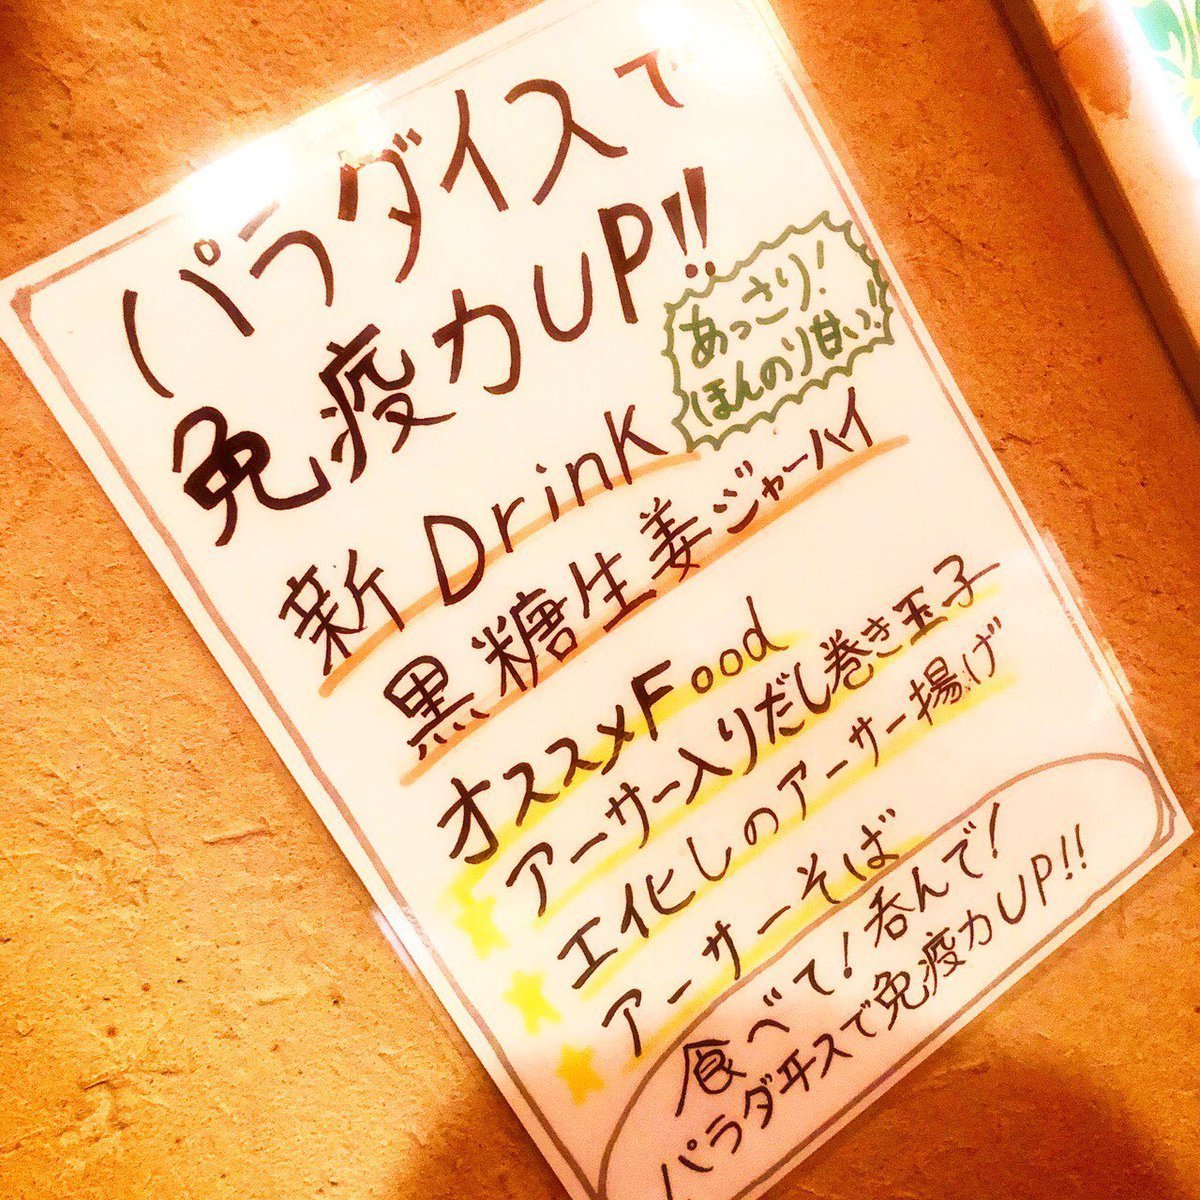 パラダイスで
免疫力UP!!
あっさり!
ほんのり甘い!!
新Drink
黒糖生姜ジャーハイ
オススメFood
アーサー入りだし巻き玉子
エイヒレのアーサー揚げ
アーサーそば
食べて!呑んで!
パラダヰスで免疫力UP!!